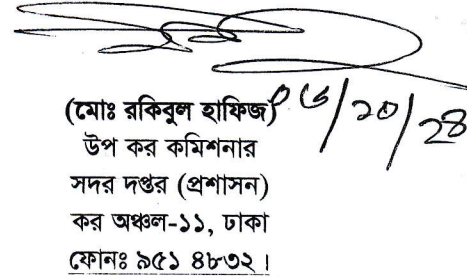 (মোঃ রকিবুল হাফিজ)
উপ কর কমিশনার
সদর দপ্তর (প্রশাসন)
কর অঞ্চল-১১, ঢাকা
ফোনঃ ৯৫১ ৪৮৩২।